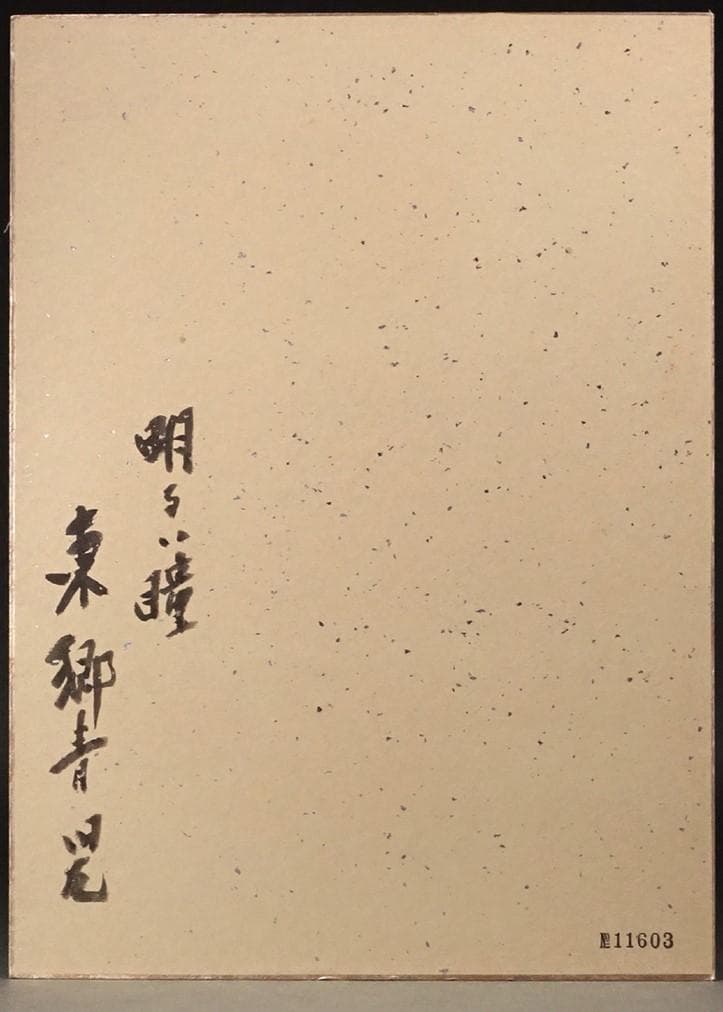 明るい瞳
東郷青児
№11603